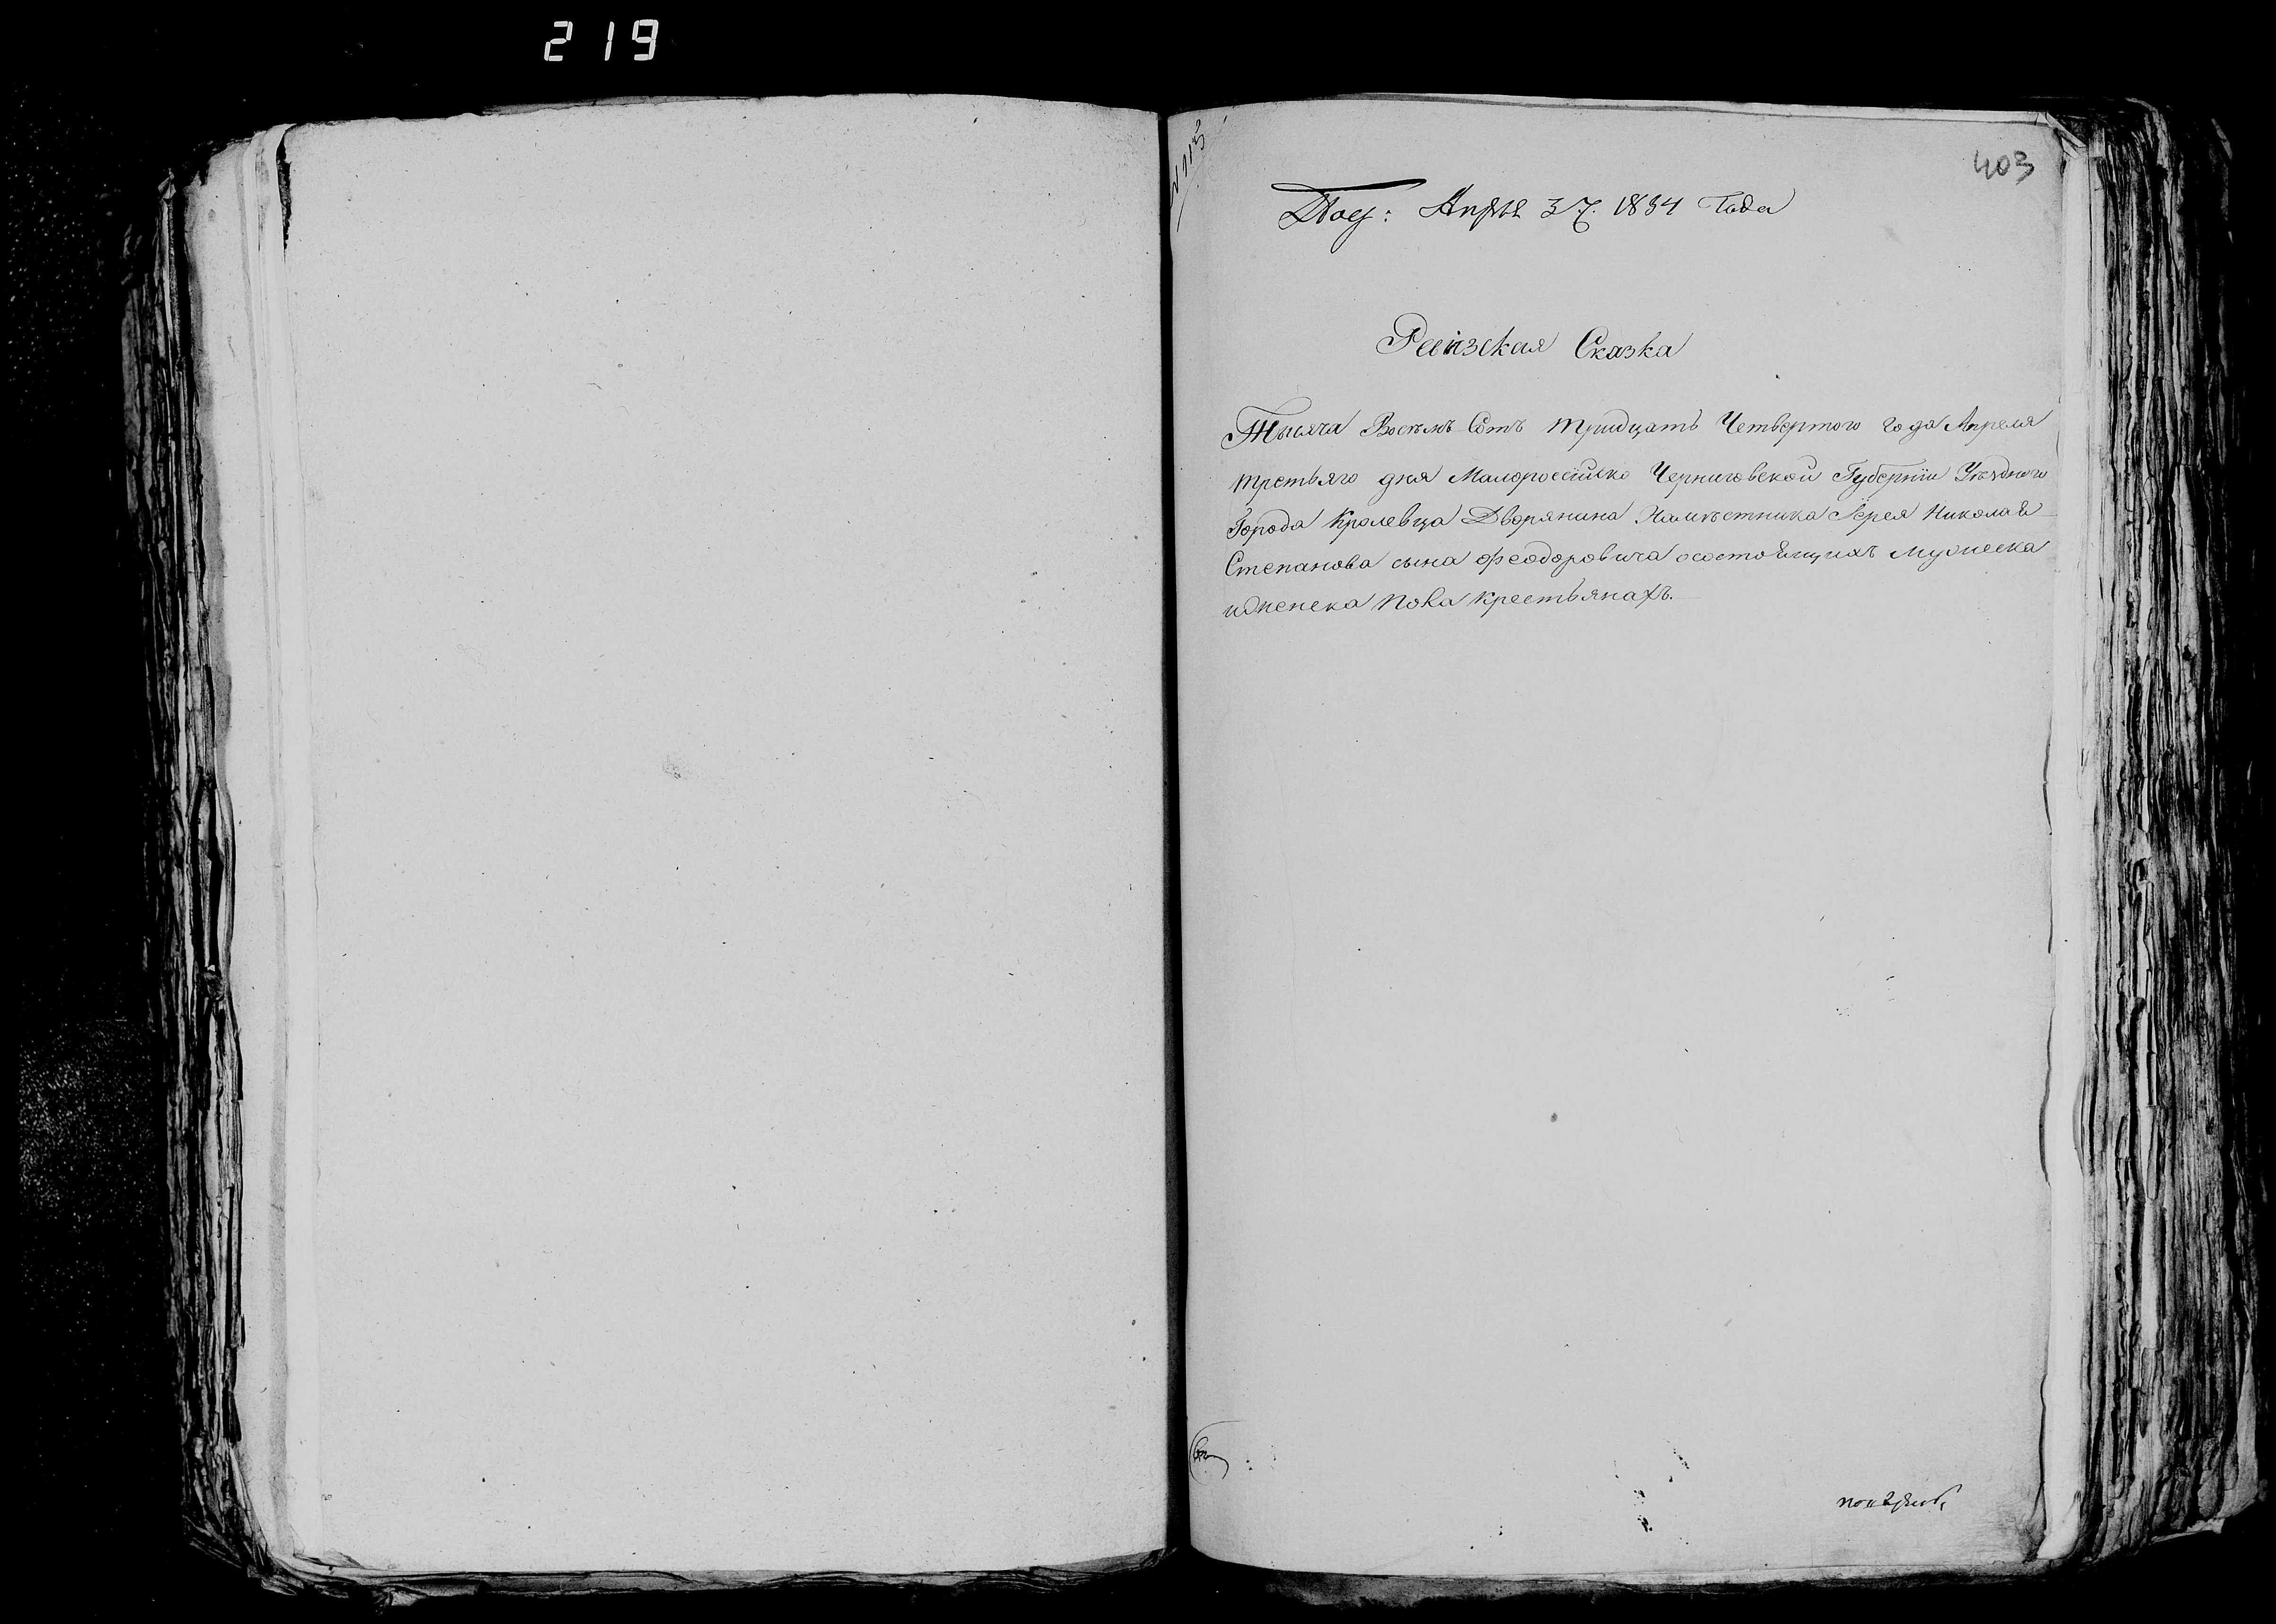 219
N 113
403
Под: Апреля 3 ч. 1834 Года
Ревизская Сказка
Тысяча Восемь Сотъ тридцать Четвертого года Апреля
третьяго дня Малороссийско Черниговской Губернїи Уѣздного
Города Кролевца Дворянина Намѣстника Іерея Николая
Степанова сына Феодоровича осостоящихъ мужеска
иженска пола крестьянахъ.